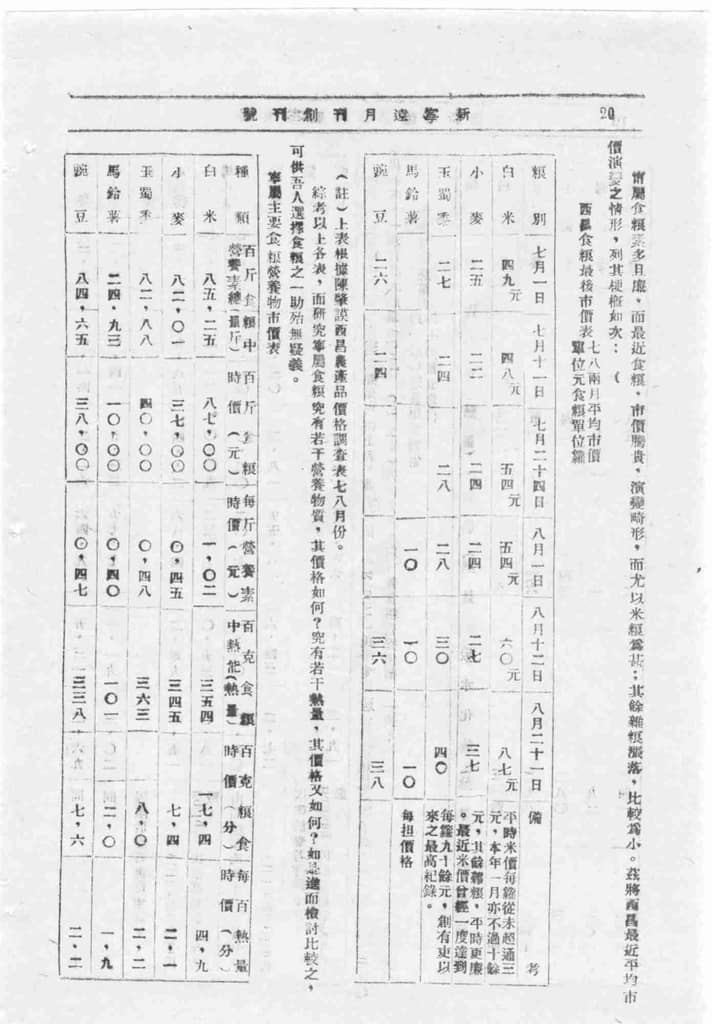 20 新寧遠月刊創刊號
寗屬食糧素多且廉,而最近食糧,市價騰貴,演變畸形,而尤以米糧為甚;其餘雜糧漲落,比較為小。茲將西昌最近平均市
價演變之情形,列其梗槪如次:(
西昌食糧最後市價表 七八兩月平均市價
單位元食糧單位籮
糧別 七月一日 七月十一日 七月二十四日 八月一日 八月十二日 八月二十一日 備考
白米 四九元 四八元 五四元 五四元 六〇元 八七元
小麥 二五 二二 二四 二四 二七 三七
玉蜀黍 二七 二四 二八 二八 三〇 四〇
馬鈴薯 一〇 一〇 一〇 每担價格
豌豆 二六 二四 三六 三八
平時米價每籮從未超過三
元,本年一月亦不過十餘
元,其餘雜糧,平時更廉
。最近米價曾經一度達到
每籮九十餘元,創有史以
來之最高紀錄。
(註)上表根據陳肇謨西昌農產品價格調查表七八月份。
綜考以上各表,而研究寧屬食糧究有若干營養物質,其價格如何?究有若干熱量,其價格又如何?如是進而檢討比較之,
可供吾人選擇食糧之一助殆無疑義。
寧屬主要食糧營養物市價表
種類 百斤食糧中營養素總(量斤) 百斤食糧時價(元) 每斤營養素時價(元) 百克食糧中熱能(熱量) 百克糧食時價(分) 每百熱量時價(分)
白米 八五,二五 八七,〇〇 一,〇二 三五四 一七,四 四,九
小麥 八二,〇一 三七,〇〇 〇,四五 三四五 七,四 二,一
玉蜀黍 八二,八八 四〇,〇〇 〇,四八 三六三 八,〇 二,二
馬鈴薯 二四,九三 一〇,〇〇 〇,四〇 一〇一 二,〇 一,九
豌豆 八四,六五 三八,〇〇 〇,四七 三三八 七,六 二,二